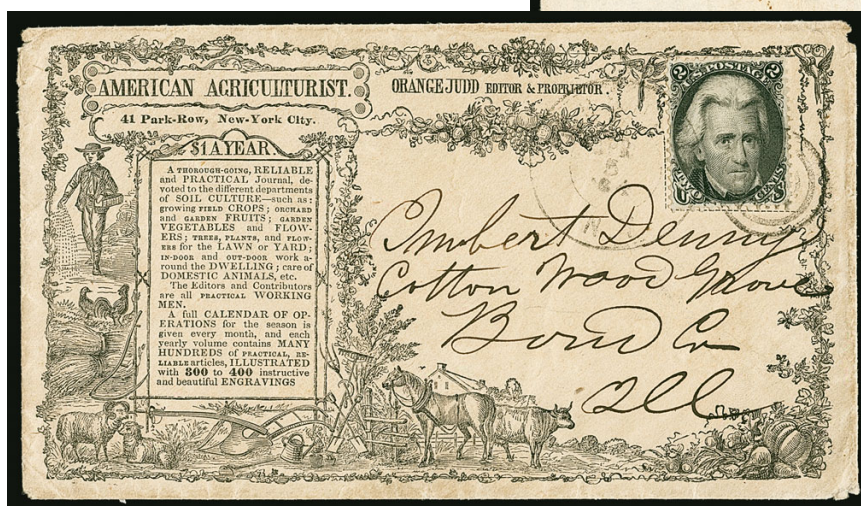 AMERICAN AGRICULTURIST.
ORANGE JUDD EDITOR & PROPRIETOR.
41 Park-Row, New-York City.
$1 A YEAR.
A THOROUGH-GOING, RELIABLE
and PRACTICAL Journal, de-
voted to the different departments
of SOIL CULTURE—such as:
growing FIELD CROPS; ORCHARD
and GARDEN FRUITS; GARDEN
VEGETABLES and FLOW-
ERS; TREES, PLANTS, and FLOW-
ERS for the LAWN or YARD;
IN-DOOR and OUT-DOOR work a-
round the DWELLING; care of
DOMESTIC ANIMALS, etc.
The Editors and Contributors
are all PRACTICAL WORKING
MEN.
A full CALENDAR OF OP-
ERATIONS for the season is
given every month, and each
yearly volume contains MANY
HUNDREDS of PRACTICAL, RE-
LIABLE articles, ILLUSTRATED
with 300 to 400 instructive
and beautiful ENGRAVINGS
2 POSTAGE 2
TWO CENTS
Imbert Denny
Cotton Wood Grove
Bond Co
Ill